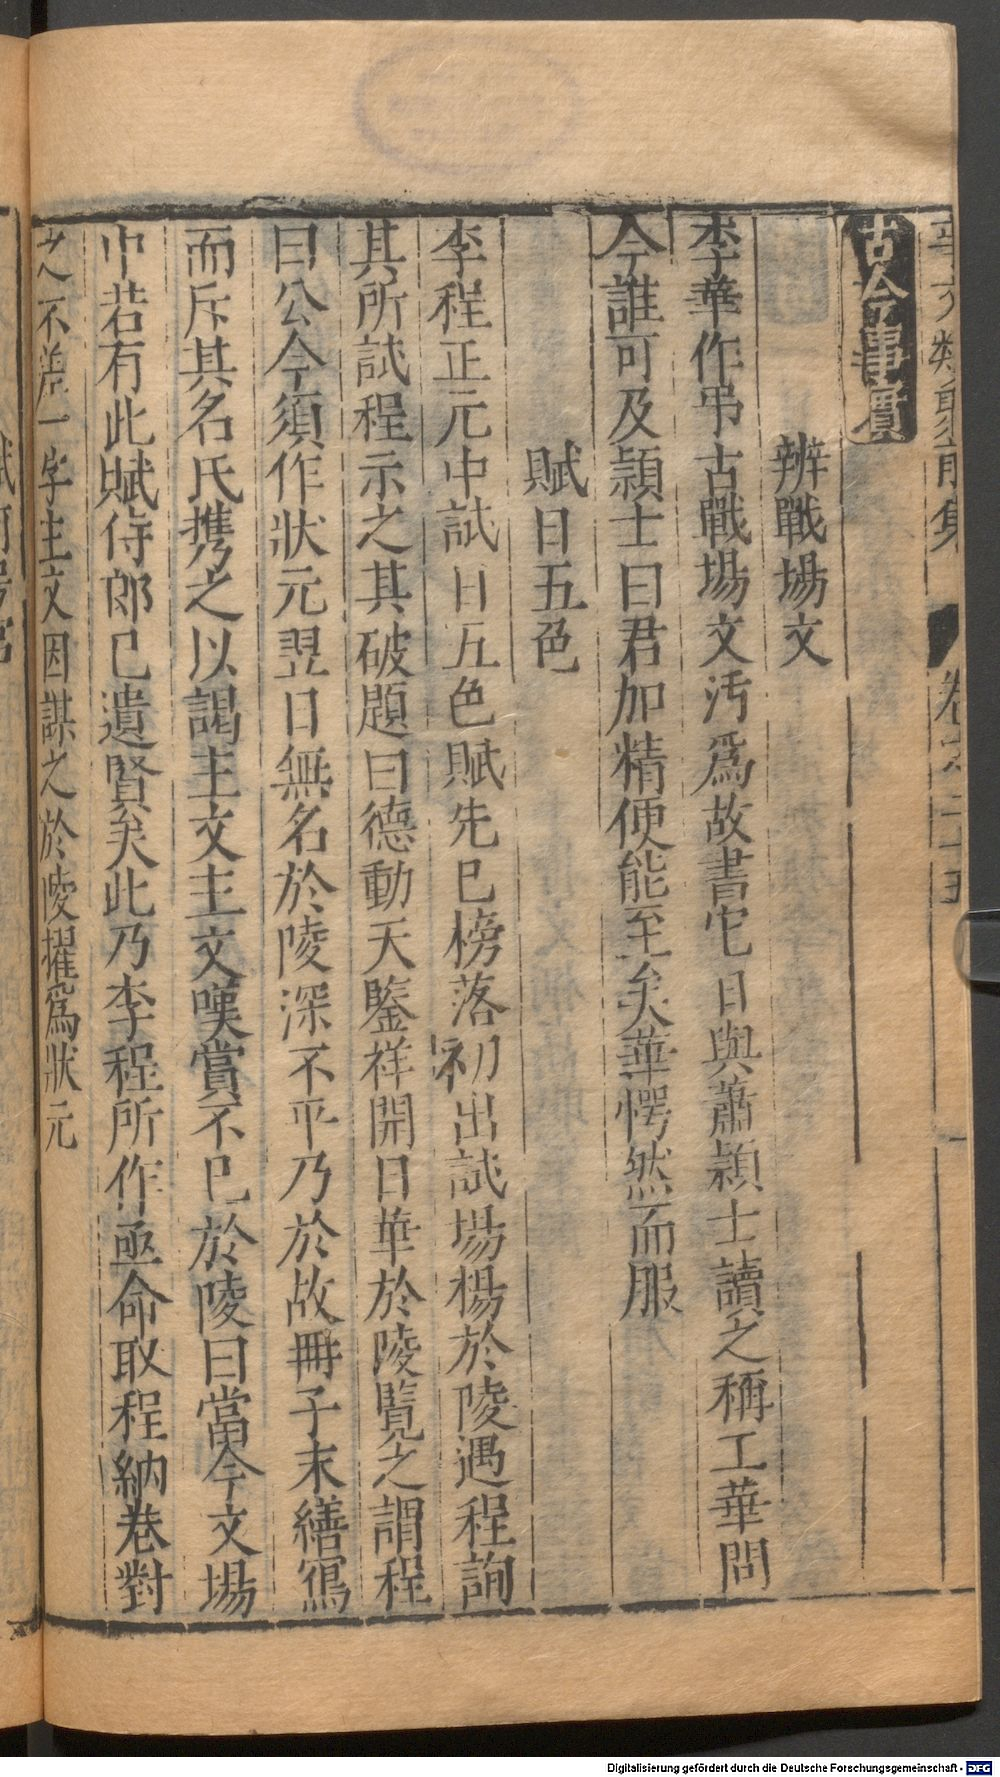 古今事實
辨戰場文
李華作弔古戰場文汚爲故書它日與蕭穎士讀之稱工華問
今誰可及穎士曰君加精便能至矣華愕然而服
賦日五色
李程正元中試日五色賦先已榜落初出試場楊於陵遇程詢
其所試程示之其破題曰德動天鑒祥開日華於陵覽之謂程
曰公今須作狀元翌日無名於陵深不平乃於故冊子末繕寫
而斥其名氏携之以謁主文主文嘆賞不已於陵曰當今文場
中若有此賦侍郎已遺賢矣此乃李程所作亟命取程納卷對
之不差一字主文因謀之於陵擢爲狀元
Digitalisierung gefördert durch die Deutsche Forschungsgemeinschaft - DFG